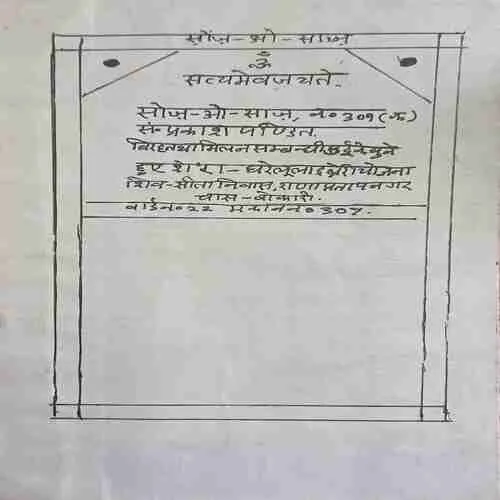 सोज़-ओ-साज़
ॐ
सत्यमेव जयते.
सोज़-ओ-साज़, न० 309 (क)
सं० प्रकाश पण्डित.
विरह तथा मिलन सम्बन्धी कई चुने
हुए शेर - घरेलू लाइब्रेरी योजना
शिव-सीता निवास, राणा प्रताप नगर
चास-बोकारो.
वार्ड न० 22 मकान न० 307.